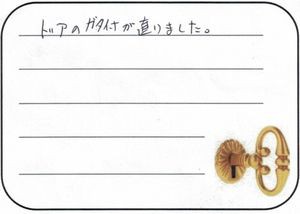 ドアのガタイナが直りました。